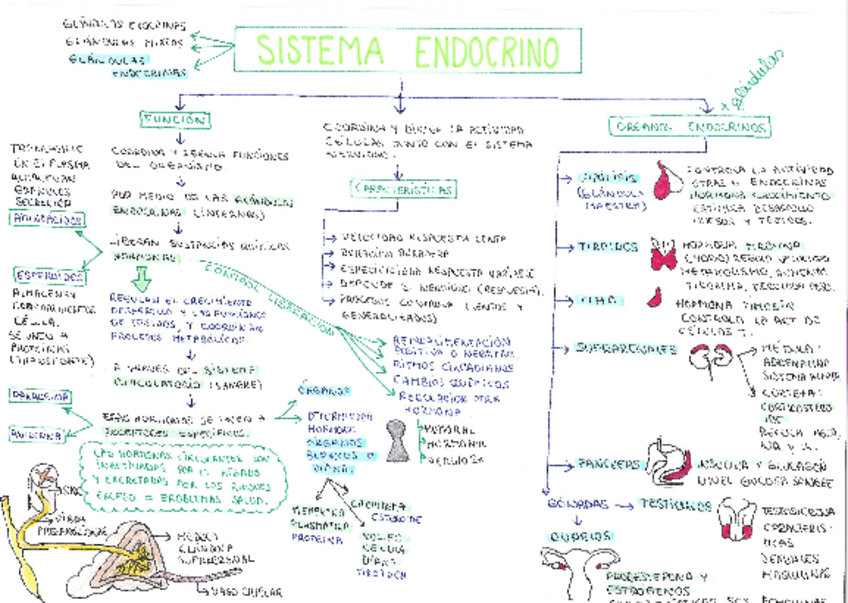 SISTEMA ENDOCRINO
GLÁNDULAS EXOCRINAS
GLÁNDULAS MIXTAS
GLÁNDULAS
ENDOCRINAS
+ glándulas
FUNCIÓN
COORDINA Y REGULA FUNCIONES
DEL ORGANISMO
POR MEDIO DE LAS GLÁNDULAS
ENDOCRINAS (INTERNAS)
LIBERAN SUSTANCIAS QUÍMICAS
HORMONAS
CONTROL LIBERACIÓN
REGULAN EL CRECIMIENTO
DESARROLLO Y LAS FUNCIONES
DE TEJIDOS, Y COORDINAN
PROCESOS METABÓLICOS.
A TRAVÉS DEL SISTEMA
CIRCULATORIO (SANGRE)
ESAS HORMONAS SE UNEN A
RECEPTORES ESPECÍFICOS.
LAS HORMONAS CIRCULANTES SON
INACTIVADAS POR EL HÍGADO
Y EXCRETADAS POR LOS RIÑONES
EXCESO = PROBLEMAS SALUD.
EN EL PLASMA
SECRECIÓN
AMINOÁCIDOS
ESTEROIDES
ALMACENAN
CÉLULA.
SE UNEN A
PROTEÍNAS
(TRANSPORTE)
PARACRINA
AUTOCRINA
COORDINA Y DIRIGE LA ACTIVIDAD
CÉLULAS JUNTO CON EL SISTEMA
NERVIOSO.
CARACTERÍSTICAS
VELOCIDAD RESPUESTA LENTA
DURACIÓN DURADERA
ESPECIFICIDAD RESPUESTA VARIABLE
DEPENDE S. NERVIOSO (RESPUESTA).
PROCESOS CONTINUA (LENTOS Y
GENERALIZADOS)
RETROALIMENTACIÓN
POSITIVA O NEGATIVA
RITMOS CIRCADIANOS
CAMBIOS QUÍMICOS
REGULACIÓN OTRA
HORMONA
HUMORAL
HORMONAL
NERVIOSA
ÓRGANOS
DETERMINADA
HORMONA
ÓRGANOS
BLANCOS O
DIANAS
MEMBRANA
PLASMÁTICA
PROTEÍNA
ESTEROIDE
NÚCLEO
CÉLULA
DIANA
TIROIDEA
MÉDULA
GLÁNDULA
SUPRARRENAL
VASO CAPILAR
ÓRGANOS ENDOCRINOS
HIPÓFISIS
(GLÁNDULA
MAESTRA)
CONTROLA LA ACTIVIDAD
OTRAS G. ENDOCRINAS
HORMONA CRECIMIENTO
ESTIMULA DESARROLLO
HUESOS Y TEJIDOS.
TIROIDES
HORMONA TIROXINA
METABOLISMO, AUMENTA
TIMO
HORMONA TIMOSIN
CONTROLA LA ACT DE
CÉLULAS T.
SUPRARRENALES
MÉDULA:
ADRENALINA
CORTEZA:
PÁNCREAS
INSULINA Y GLUCAGÓN
NIVEL GLUCOSA SANGRE
GÓNADAS
TESTÍCULOS
TESTOSTERONA
CARACTERÍS-
TICAS
SEXUALES
MASCULINAS
OVARIOS
PROGESTERONA Y
ESTRÓGENOS